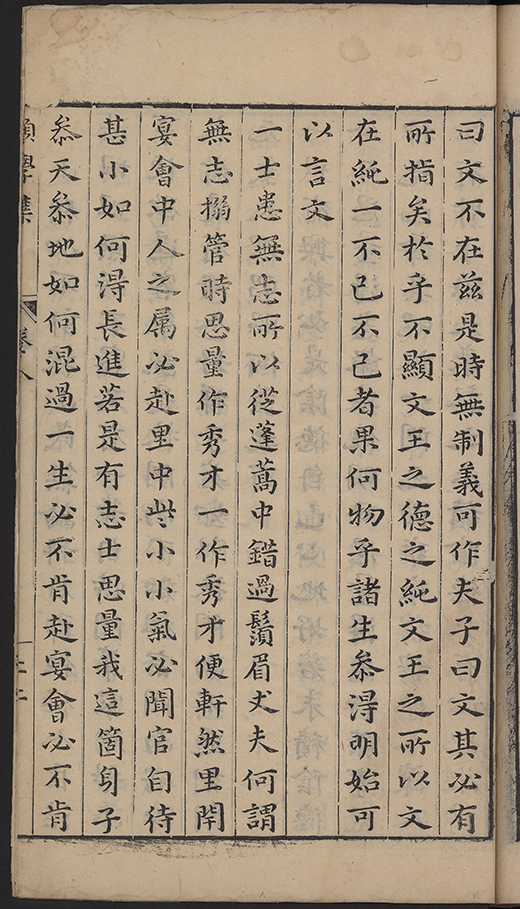 曰文不在茲是時無制義可作夫子曰文其必有
所指矣於乎不顯文王之德之純文王之所以文
在純一不已不已者果何物乎諸生叅淂明始可
以言文
一士患無志所以從蓬蒿中錯過鬚眉丈夫何謂
無志搦管時思量作秀才一作秀才便軒然里閈
宴會中人之属必赴里中些小小氣必聞官自待
甚小如何得長進若是有志士思量我這箇身子
叅天叅地如何混過一生必不肯赴宴會必不肯
學集
卷八